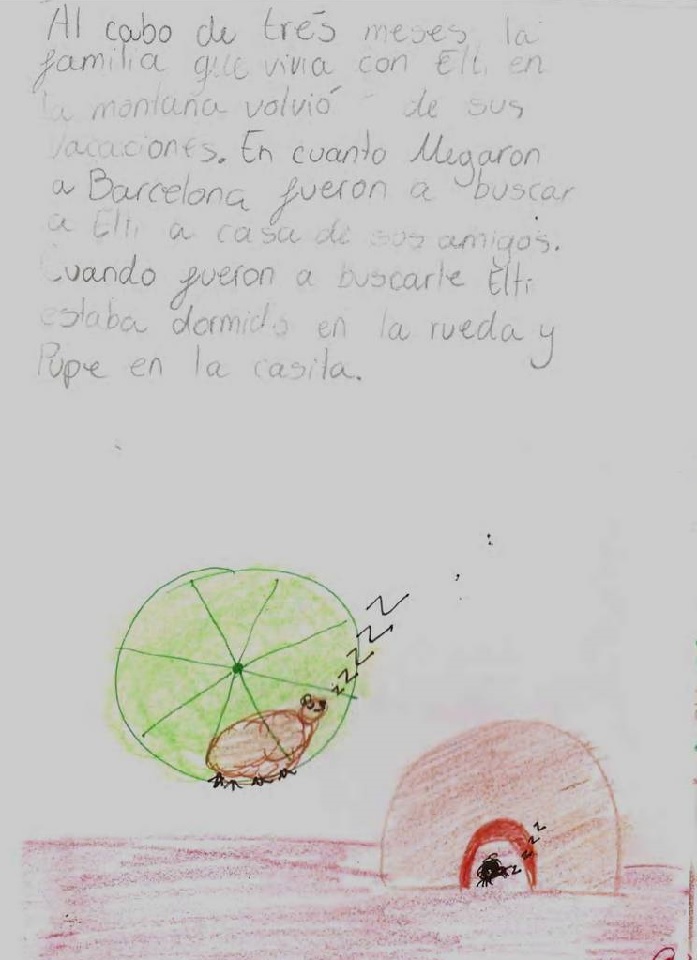 Al cabo de trés meses la
familia que vivia con Elti en
la montaña volvió de sus
vacaciones. En cuanto llegaron
a Barcelona fueron a buscar
a Elti a casa de sus amigos.
Cuando fueron a buscarle Elti
estaba dormido en la rueda y
Pupe en la casita.
zzzzz
zzzz